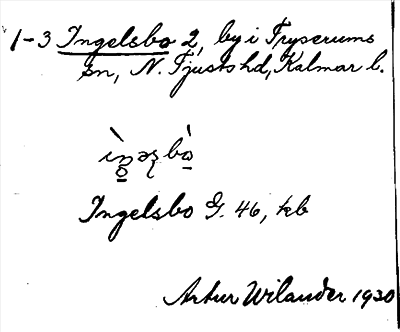 1-3 Ingelsbo 2, by i Tryserums
sn, N. Tjusts hd, Kalmar l.
ìŋəʂbò
Ingelsbo G. 46, kb
Artur Wilander 1930